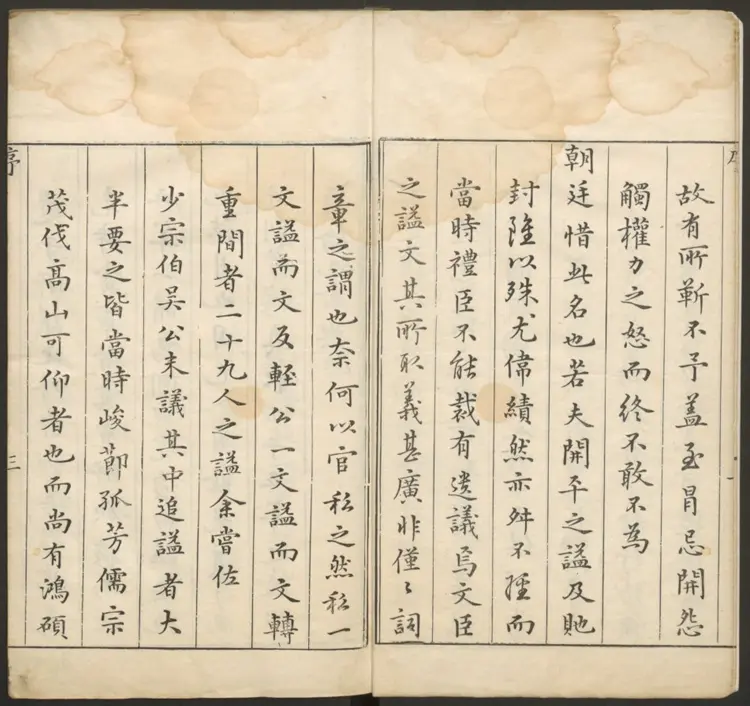 故有所靳不予蓋至冒忌開怨
觸權力之怒而終不敢不為
朝廷惜此名也若夫開平之謚及貤
封雖以殊尤偉績然亦舛不經而
當時禮臣不能裁有遺議焉文臣
之謚文其所取義甚廣非僅〻詞
章之謂也奈何以官私之然私一
文謚而文反輕公一文謚而文轉
重間者二十九人之謚余嘗佐
少宗伯吳公末議其中追謚者大
半要之皆當時峻節孤芳儒宗
茂伐高山可仰者也而尚有鴻碩
序
三